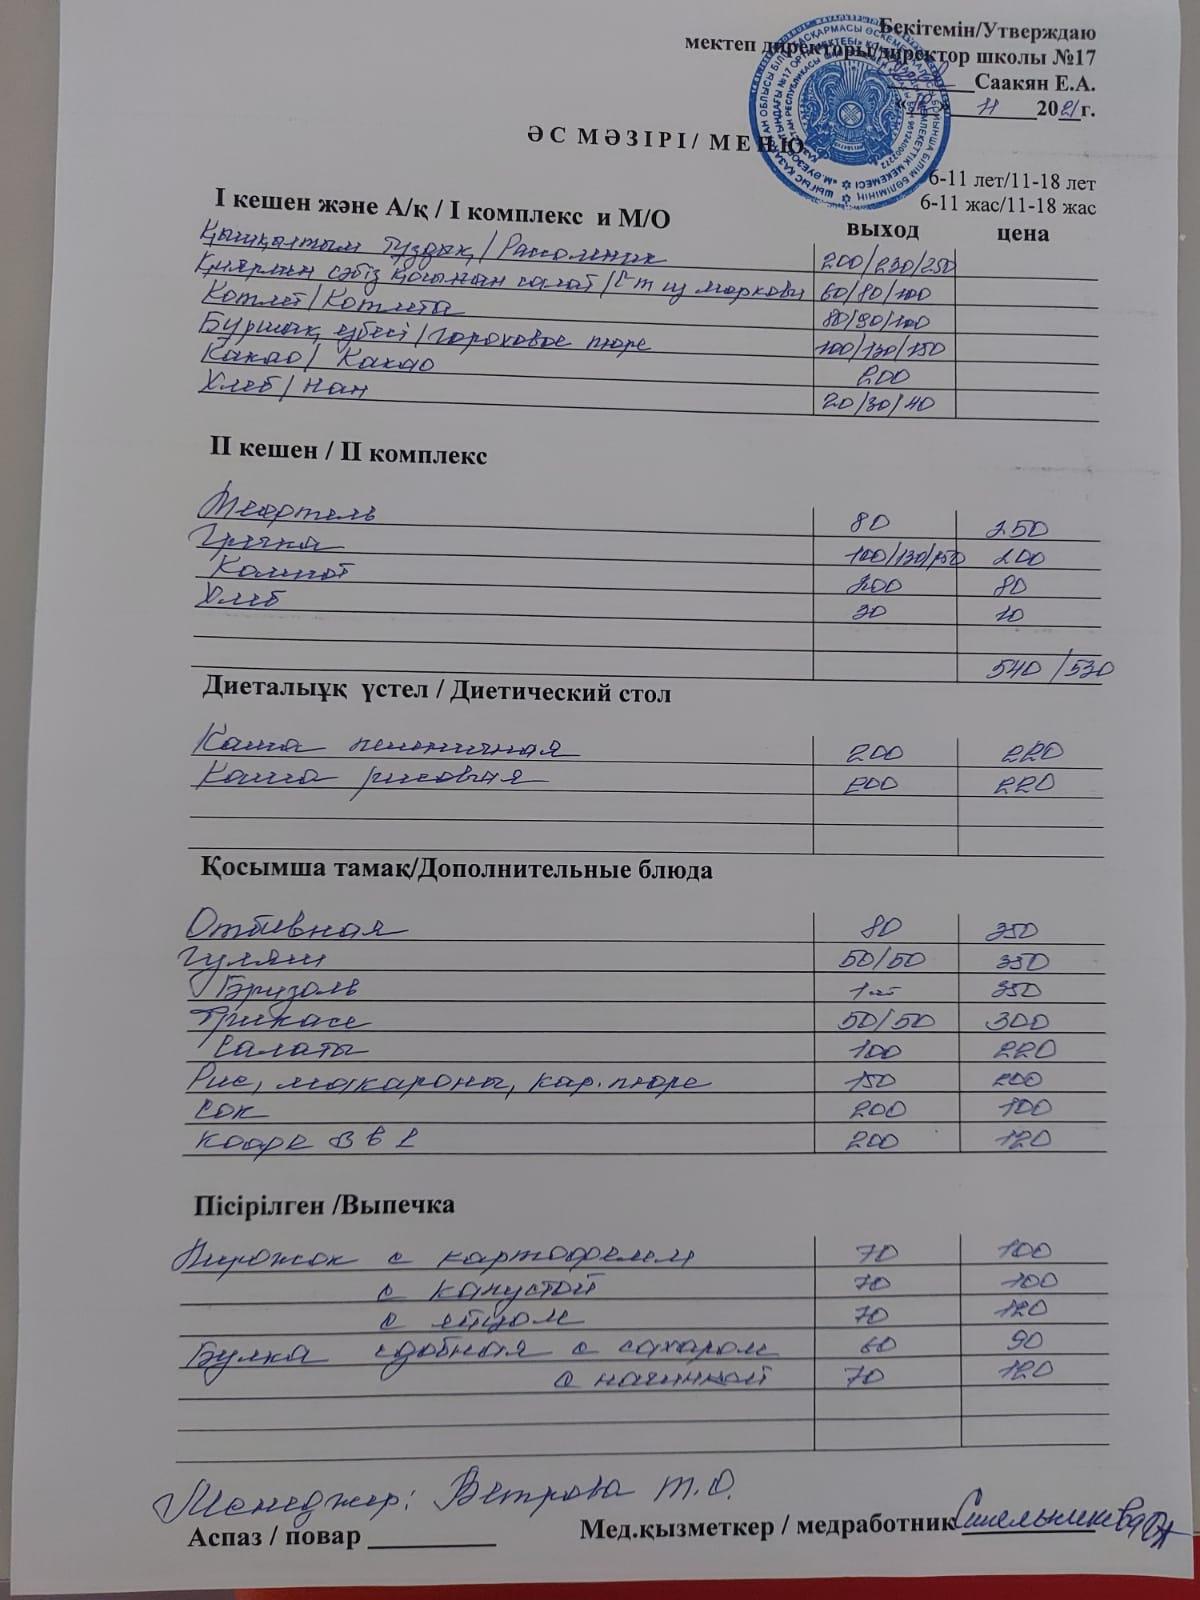 Бекітемін/Утверждаю
мектеп директоры/директор школы №17
Саакян Е.А.
11 2021г.
ӘС МӘЗІРІ/ МЕНЮ
6-11 лет/11-18 лет
6-11 жас/11-18 жас
І кешен және А/қ / І комплекс и М/О выход цена
Қышқылтым тұздық / Рассольник 200/230/250
сәбіз қосынан салат / с-т из моркови 60/80/100
Котлет / Котлета 80/90/100
Бұршақ езбесі / гороховое пюре 100/130/150
Какао / Какао 200
Хлеб / Нан 20/30/40
ІІ кешен / ІІ комплекс
80 250
Гречка 100/130/150 200
Компот 200 80
Хлеб 30 10
540 / 530
Диеталыұқ үстел / Диетический стол
Каша пшеничная 200 220
Каша рисовая 200 220
Қосымша тамақ/Дополнительные блюда
Отбивная 80 350
Гуляш 50/50 350
Бризоль 1шт 350
Фрикасе 50/50 300
Салаты 100 220
Рис, макароны, кар. пюре 150 200
Сок 200 100
Кофе 3 в 1 200 120
Пісірілген /Выпечка
Пирожок с картофелем 70 100
с капустой 70 100
с яйцом 70 120
Булка сдобная с сахаром 60 90
с начинкой 70 120
Менеджер: Ветрова Т.О.
Аспаз / повар
Мед.қызметкер / медработник Синельникова